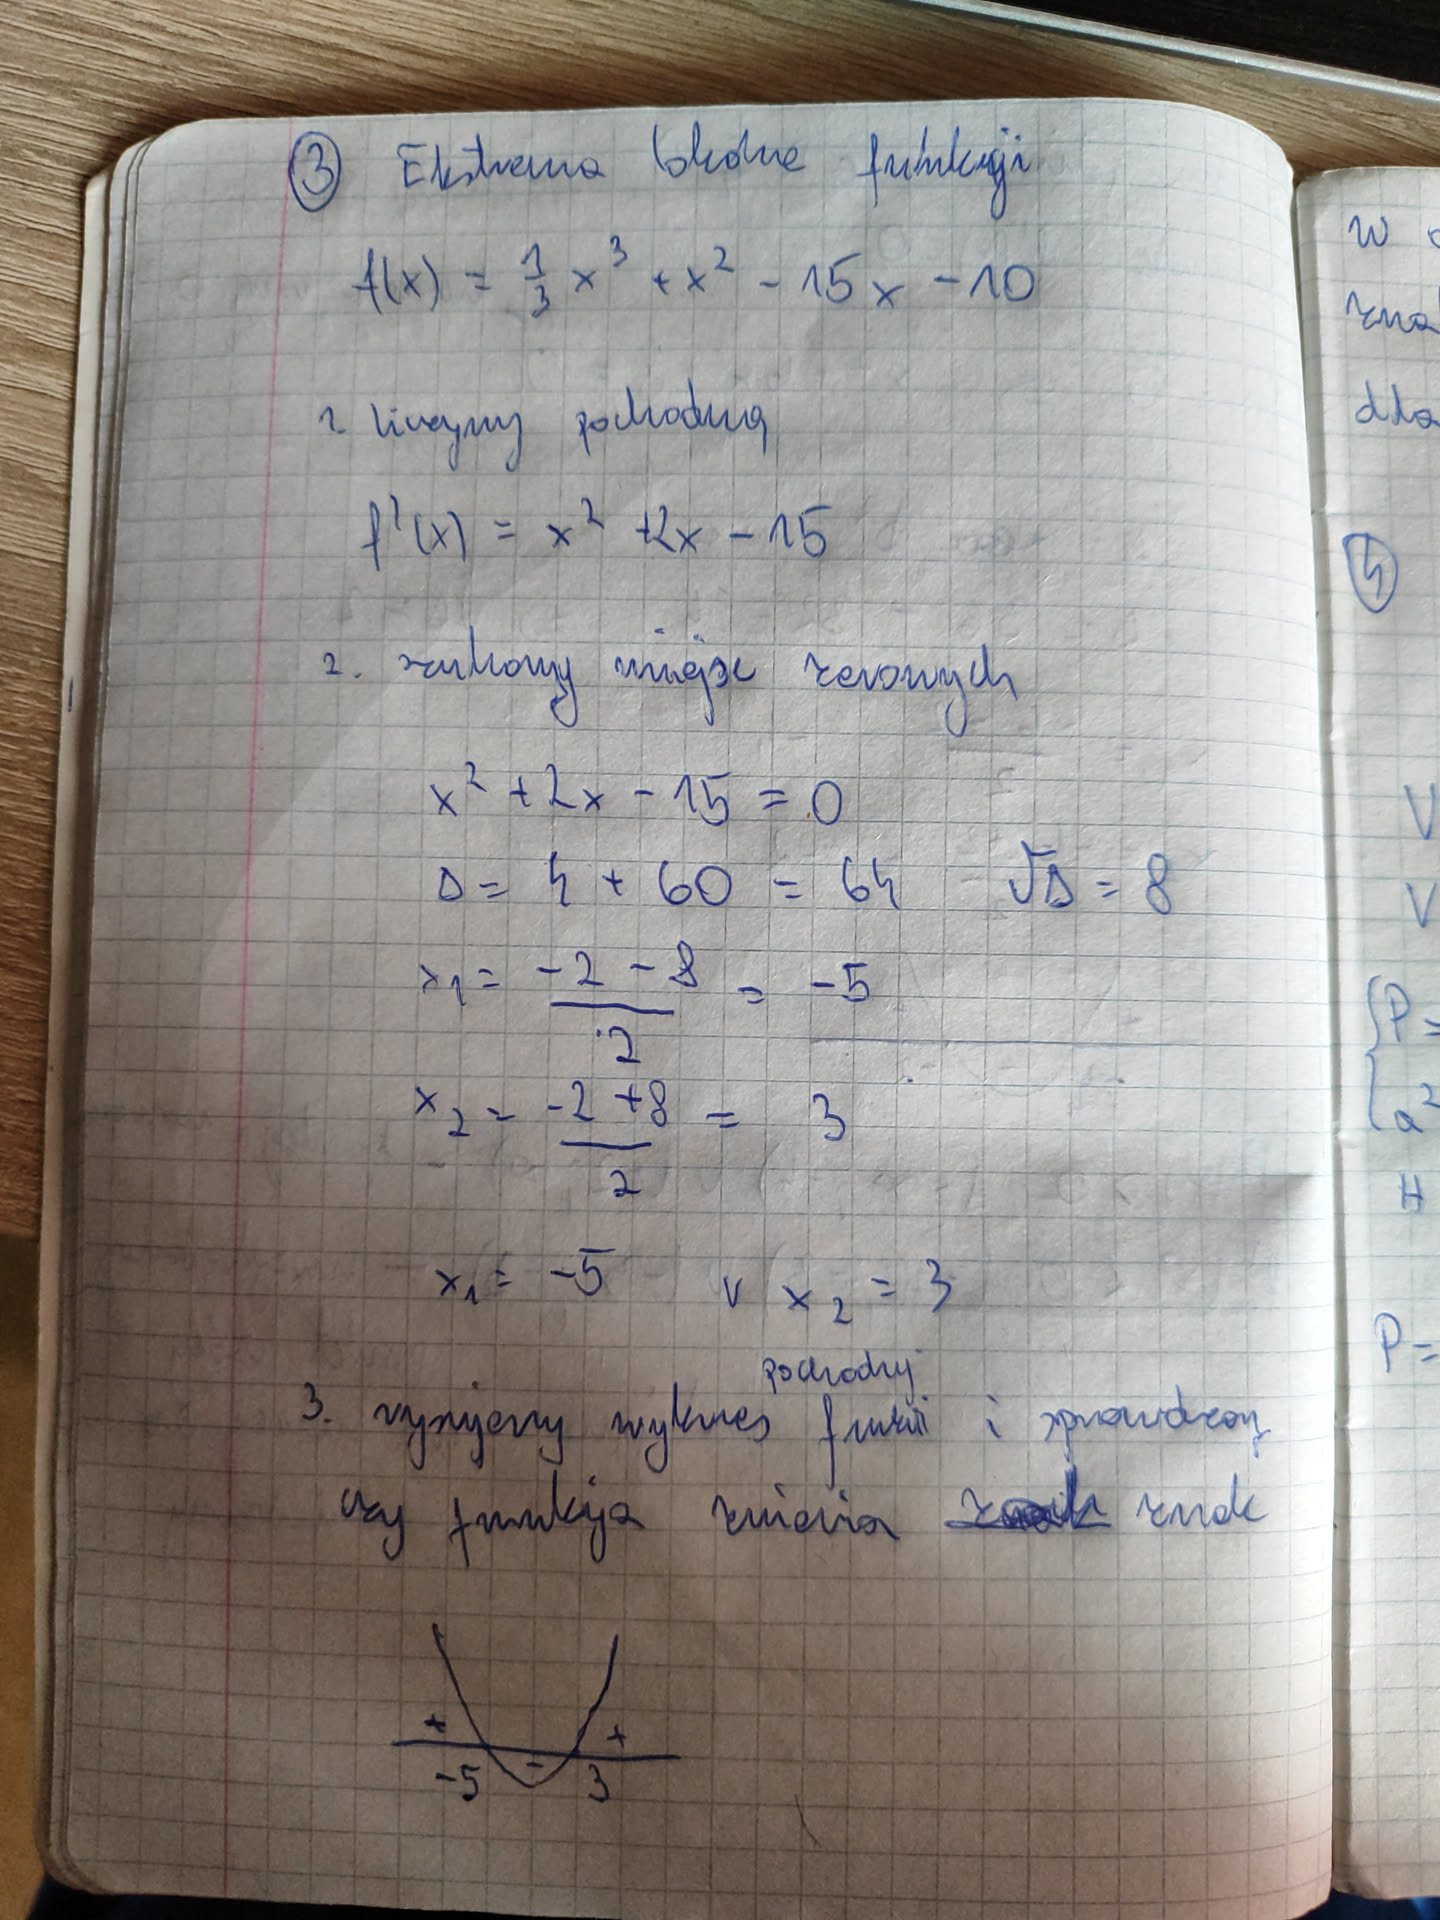 ③ Ekstrema lokalne funkcji
f(x) = 1/3 x³ + x² - 15x - 10
1. liczymy pochodną
f'(x) = x² + 2x - 15
2. szukamy miejsc zerowych
x² + 2x - 15 = 0
Δ = 4 + 60 = 64 √Δ = 8
x₁ = (-2 - 8)/2 = -5
x₂ = (-2 + 8)/2 = 3
x₁ = -5 v x₂ = 3
pochodnej
3. rysujemy wykres funkcji i sprawdzamy
czy funkcja zmienia znak
+ - +
-5 3
w
zna
dla
④
V
V
P =
a²
H
P =